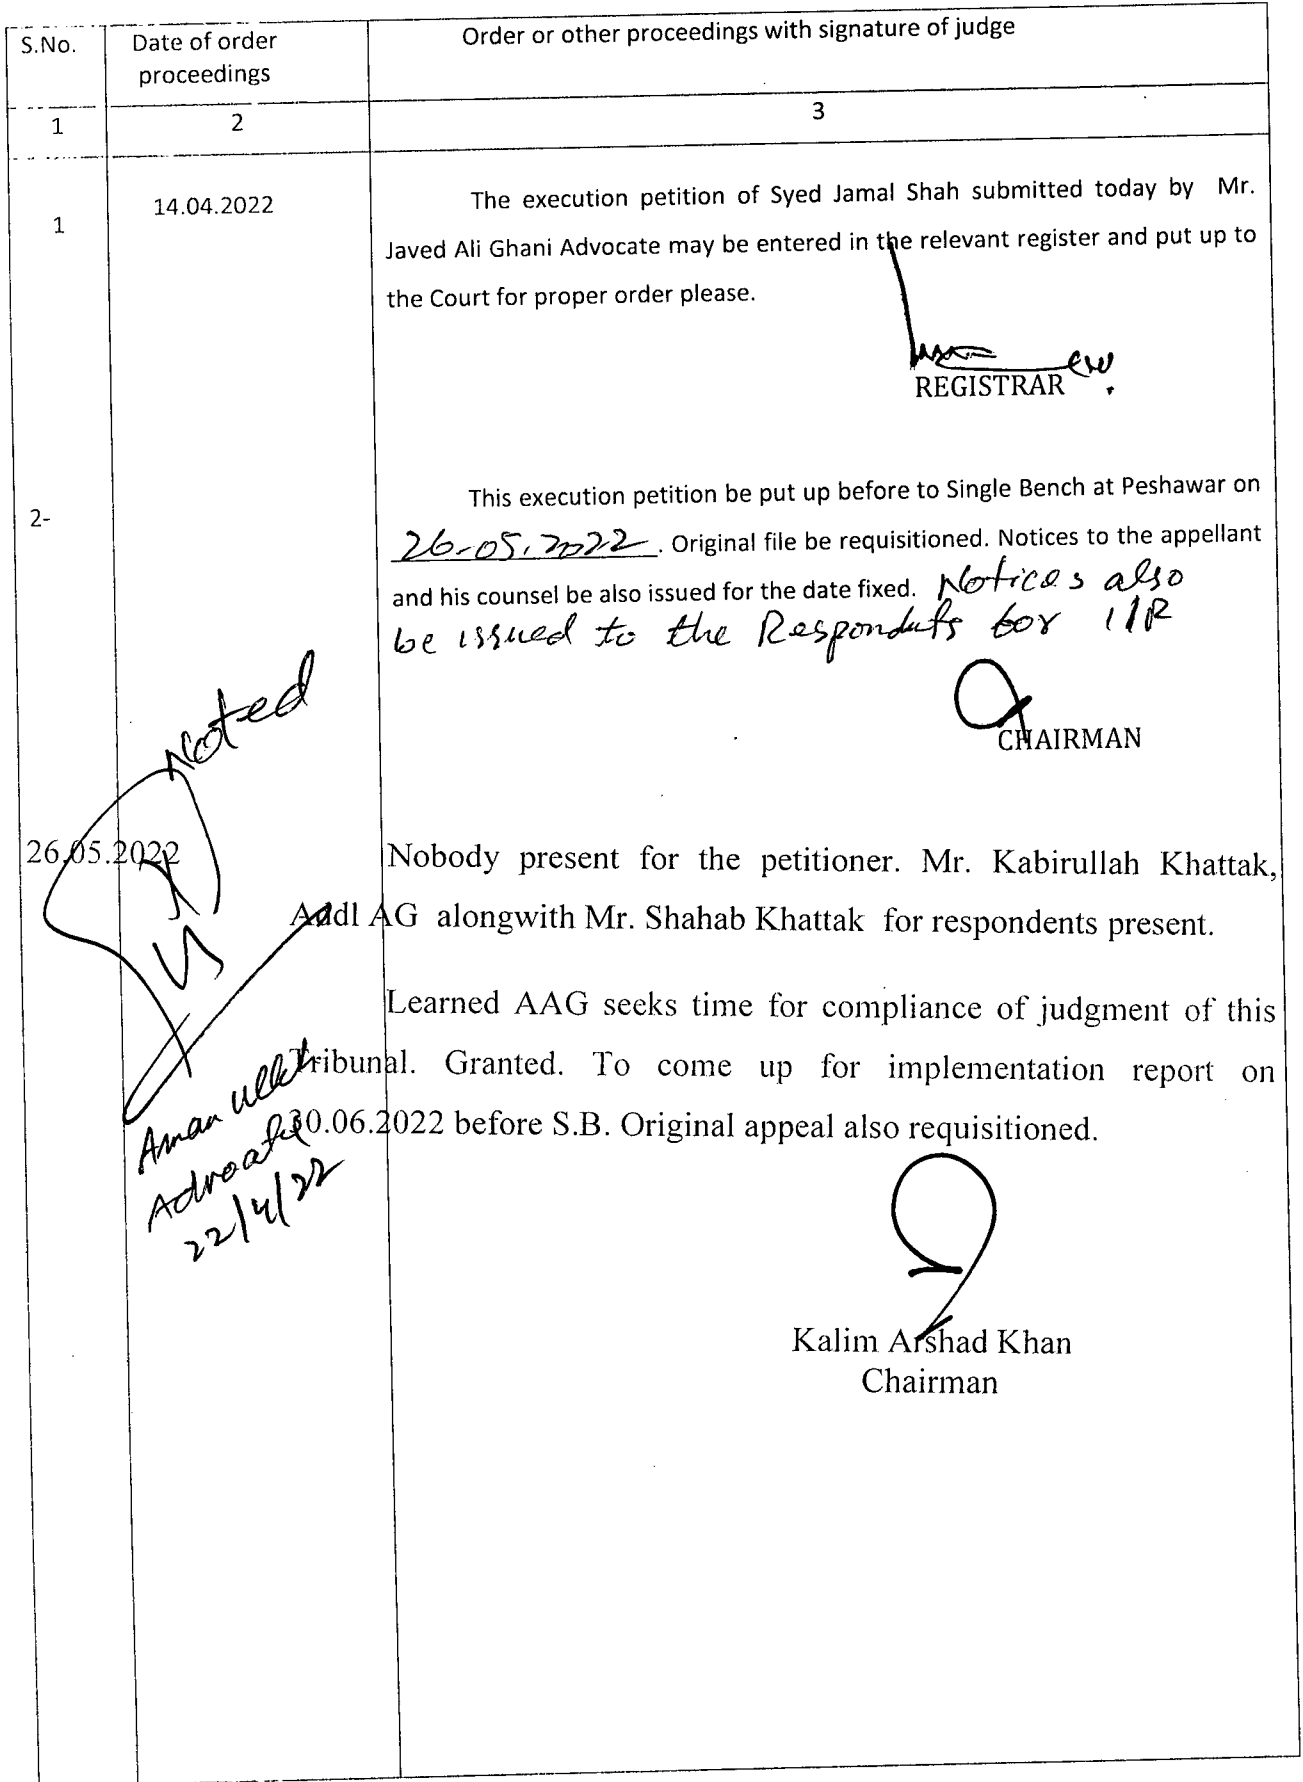 S.No.
Date of order
proceedings
Order or other proceedings with signature of judge
1
2
3
1
14.04.2022
The execution petition of Syed Jamal Shah submitted today by Mr.
Javed Ali Ghani Advocate may be entered in the relevant register and put up to
the Court for proper order please.
REGISTRAR
2-
This execution petition be put up before to Single Bench at Peshawar on
26-05.2022. Original file be requisitioned. Notices to the appellant
and his counsel be also issued for the date fixed. Notices also
be issued to the Respondents for IIR
CHAIRMAN
Noted
26.05.2022
Nobody present for the petitioner. Mr. Kabirullah Khattak,
Addl AG alongwith Mr. Shahab Khattak for respondents present.
Learned AAG seeks time for compliance of judgment of this
Tribunal. Granted. To come up for implementation report on
30.06.2022 before S.B. Original appeal also requisitioned.
Aman ullah
Advocate
22/4/22
Kalim Arshad Khan
Chairman